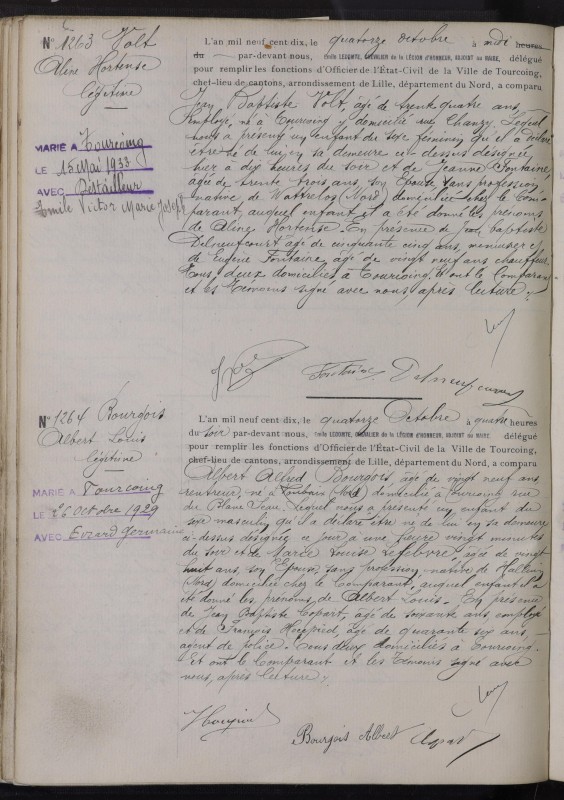 N° 1263 Volt
Aline Hortense
légitime
MARIÉ A Tourcoing
LE 15 Mai 1933
AVEC Détailleur
Emile Victor Marie Joseph
L'an mil neuf cent dix, le quatorze octobre à midi heures
du par-devant nous, LECOMTE, CHEVALIER DE LA LÉGION D'HONNEUR, ADJOINT DU MAIRE, délégué
pour remplir les fonctions d'Officier de l'État-Civil de la Ville de Tourcoing,
chef-lieu de cantons, arrondissement de Lille, département du Nord, a comparu
Jean Baptiste Volt, âgé de trente quatre ans,
employé, né à Tourcoing y demeurant rue Chanzy, lequel
nous a présenté un enfant du sexe féminin qu'il a déclaré
être né de lui, en sa demeure ci dessus désignée
hier à dix heures du soir et de Jeanne Fontaine,
âgée de trente trois ans, son Epouse sans profession
native de Wattrelos (Nord) domiciliée chez le Com-
parant, auquel enfant il a été donné les prénoms
de Aline Hortense. En présence de Jean Baptiste
Delneufcourt âgé de cinquante cinq ans, menuisier et
de Eugène Fontaine, âgé de vingt neuf ans chauffeur.
Tous deux domiciliés à Tourcoing. Et ont le Comparant
et les Témoins signé avec nous, après lecture.
Fontaine Delneufcourt
N° 1264 Bourgois
Albert Louis
légitime
MARIÉ A Tourcoing
LE 26 Octobre 1929
AVEC Evrard Germaine
L'an mil neuf cent dix, le quatorze Octobre à quatre heures
du soir par-devant nous, LECOMTE, CHEVALIER DE LA LÉGION D'HONNEUR, ADJOINT DU MAIRE, délégué
pour remplir les fonctions d'Officier de l'État-Civil de la Ville de Tourcoing,
chef-lieu de cantons, arrondissement de Lille, département du Nord, a comparu
Albert Alfred Bourgois, âgé de vingt neuf ans
rentreur, né à Roubaix (Nord) domicilié à Tourcoing rue
du Blanc Seau, lequel nous a présenté un enfant du
sexe masculin qu'il a déclaré être né de lui en sa demeure
ci-dessus désignée ce jour à une heure vingt minutes
du soir et de Marie Louise Lefebvre, âgée de vingt
huit ans, son Epouse, sans profession native de Halluin
(Nord) domiciliée chez le Comparant, auquel enfant il a
été donné les prénoms de Albert Louis. En présence
de Jean Baptiste Copart, âgé de soixante ans employé
et de François Hocepied, âgé de quarante six ans,
agent de police. Tous deux domiciliés à Tourcoing.
Et ont le Comparant et les Témoins signé avec
nous, après lecture.
Hocepied
Bourgois Albert Copart